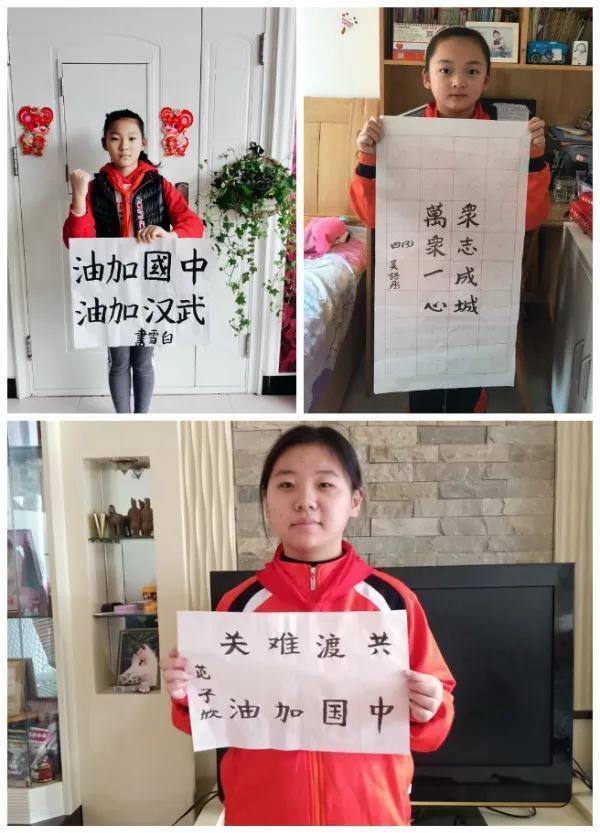 中國加油
武汉加油
白雪書
衆志成城
萬衆一心
四(3)
共渡难关
中国加油
范子欣